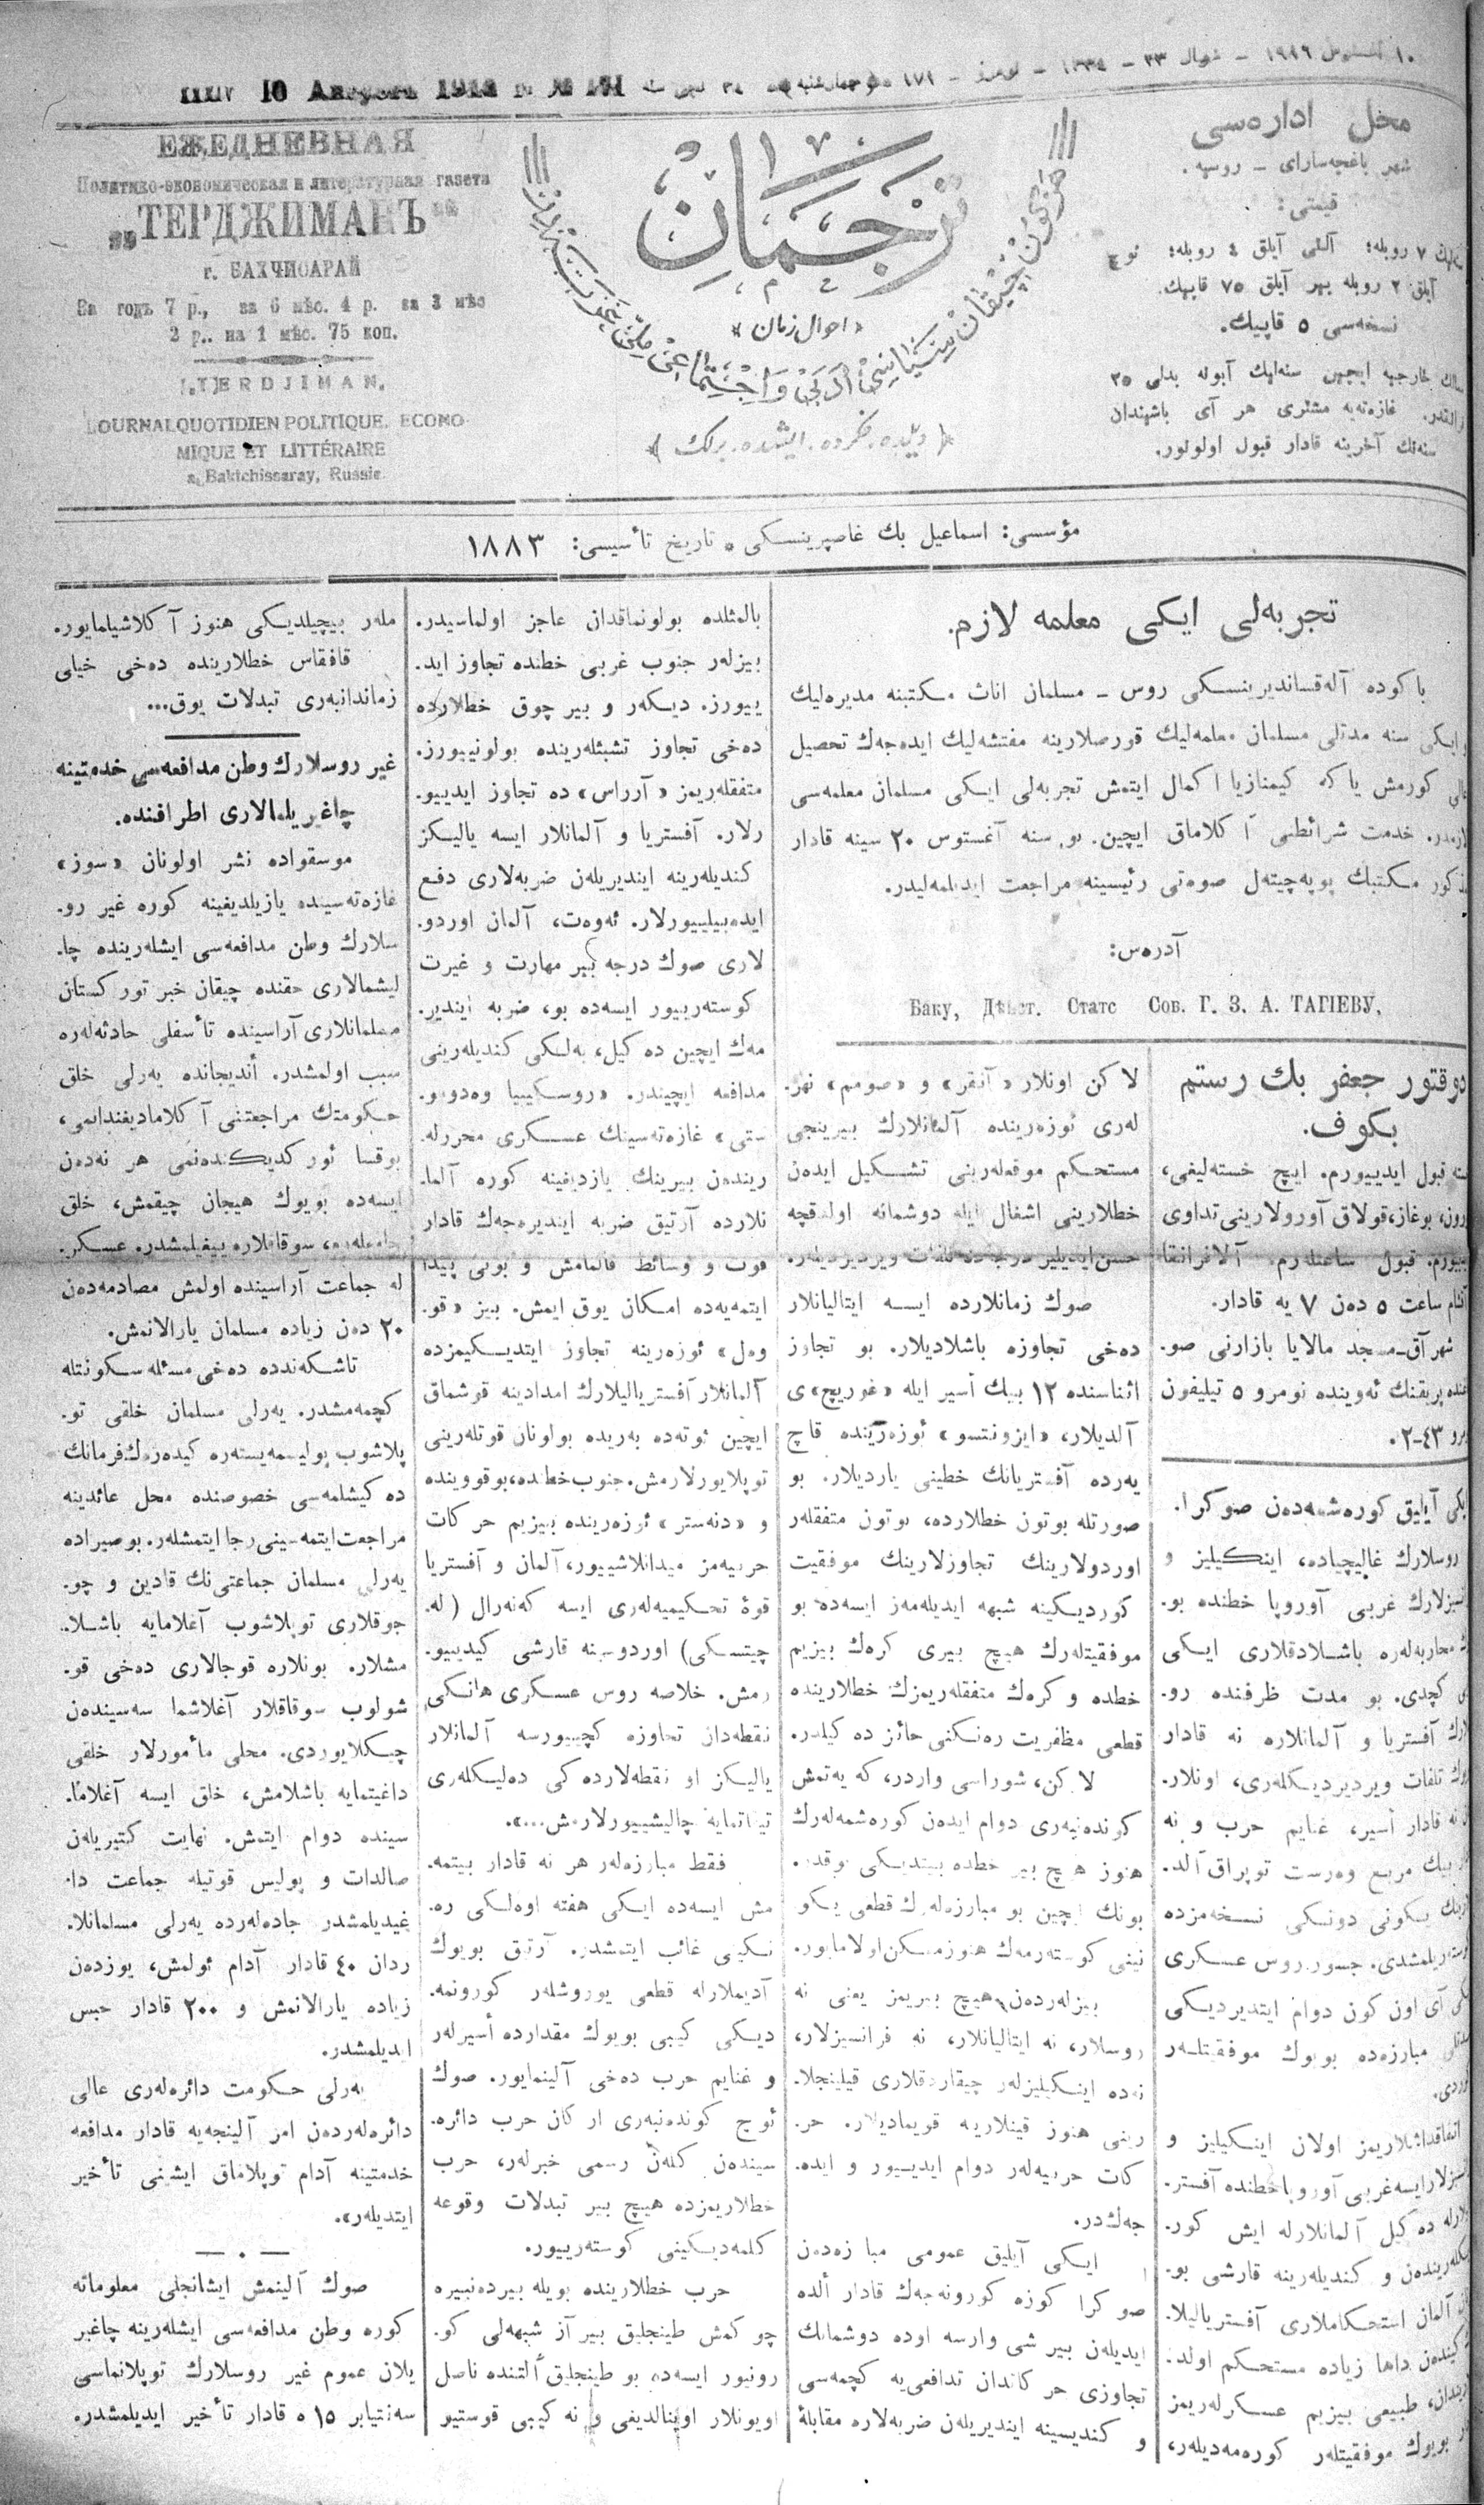 ١٠ آغستوس ١٩١٦ – شوال ٢٣ – ١٣٣٤ – نومرو – ١٧١
XXXIV 10 Августа 1916 г. № 171
محل اداره‌سی
شهر باغچه‌سارای – روسیه.
قیمتی:
٧ روبله؛ آلتی آیلق ٤ روبله؛
آیلق ٢ روبله بیر آیلق ٧٥ قاپیك.
نسخه‌سی ٥ قاپیك.
خارجیه ایچین سنه‌لیك آبونه بدلی ٢٥
غازه‌ته‌یه مشتری هر آی باشیندان
سنه‌نك آخرینه قادار قبول اولونور.
ترجمان
«احوال زمان»
﴿ دیلده، فکرده، ایشده، برلك ﴾
ЕЖЕДНЕВНАЯ
Политико-экономическая и литературная газета
„ТЕРДЖИМАНЪ“
г. БАХЧИСАРАЙ
За годъ 7 р., за 6 мѣс. 4 р. за 3 мѣс
2 р.. на 1 мѣс. 75 коп.
„TERDJIMAN„
LOURNAL QUOTIDIEN POLITIQUE, ECONO-
MIQUE ET LITTÉRAIRE
a Baktchissaray, Russie.
مؤسسی: اسماعیل بك غاصپرینسکی ٭ تاریخ تأسیسی: ١٨٨٣
تجربه‌لی ایکی معلمه لازم.
باکوده آله‌قساندیرینسکی روس – مسلمان اناث مکتبنه مدیره‌لیك
ایکی سنه مدتلی مسلمان معلمه‌لیك قورصلارینه مفتشه‌لیك ایده‌جه‌ك تحصیل
کورمش یا که کیمنازیا اکمال ایتمش تجربه‌لی ایکی مسلمان معلمه‌سی
لازمدر. خدمت شرائطنی آکلاماق ایچین بو سنه آغستوس ٢٠ سینه قادار
مذکور مکتبك پوپه‌چیتەل صوه‌تی رئیسینه مراجعت ایدیلمه‌لیدر.
آدره‌س:
Баку, Дѣйст. Статс Сов. Г. З. А. ТАГІЕВУ,
دوقتور جعفر بك رستم
بکوف.
قبول ایدییورم. ایچ خسته‌لیغی،
بوغاز، قولاق آورولارینی تداوی
قبول ساعتلەرم آلافرانقا
ساعت ٥ ده‌ن ٧ یه قادار.
شهر آق-مسجد مالایا بازارنی
ئه‌وینده نومرو ٥ تیلیفون
٤٣-٢.
آیلیق کوره‌شمه‌ده‌ن صوکرا.
روسلارك غالیچیاده، اینکیلیز و
غربی آوروپا خطنده بو.
محاربه‌لەره باشلادقلاری ایکی
کچدی. بو مدت ظرفنده رو.
آفستریا و آلمانلاره نه قادار
تلفات ویردیردیکلەری، اونلار.
نه قادار أسیر، غنایم حرب و نه
بیك مربع وه‌رست توپراق آلد.
یکونی دونکی نسخه‌مزده
جسور روس عسکری
آی اون کون دوام ایتدیردیکی
مبارزه‌ده بویوك موفقیتلەر
اتفاقداشلاریمز اولان اینکیلیز و
غربی آوروپا خطنده آفستر.
ده کیل آلمانلارله ایش کور.
و کندیلەرینه قارشی بو.
آلمان استحکاملاری آفستریالیلا.
داها زیاده مستحکم اولد.
طبیعی بیزیم عسکرلەریمز
بویوك موفقیتلەر کوره‌مه‌دیلەر،
لاکن اونلار «آنقر» و «صومم» نهر.
لەری ئوزه‌رینده آلمانلارك بیرینجی
مستحکم موقعلەرینی تشکیل ایده‌ن
خطلارینی اشغال ایله دوشمانه اولدقچه
حس ایدیلیر درجه‌ده تلفات ویردیردیلەر.
صوك زمانلارده ایسه ایتالیانلار
ده‌خی تجاوزه باشلادیلار. بو تجاوز
اثناسنده ١٢ بیك أسیر ایله «غوریچ» ی
آلدیلار، «ایزونتسو» ئوزه‌رینده قاچ
یه‌رده آفستریانك خطینی یاردیلار. بو
صورتله بوتون خطلارده، بوتون متفقلەر
اوردولارینك تجاوزلارینك موفقیت
کوردیکینه شبهه ایدیلەمز ایسه‌ده بو
موفقیتلەرك هیچ بیری کره‌ك بیزیم
خطده و کره‌ك متفقلەریمزك خطلارینده
قطعی مظفریت ره‌نکنی حائز ده کیلدر.
لاکن، شوراسی واردر، که یه‌تمش
کونده‌نبه‌ری دوام ایده‌ن کوره‌شمه‌لەرك
هنوز هیچ بیر خطده بیتدیکی یوقدر.
بونك ایچین بو مبارزه‌لەرك قطعی یکو
نینی کوسته‌رمه‌ك هنوز ممکن اولامایور.
بیزلەرده‌ن هیچ بیریمز یعنی نه
روسلار، نه ایتالیانلار، نه فرانسیزلار،
نه‌ده اینکیلیزلەر چیقاردقلاری قیلینجلا.
رینی هنوز قینلارینه قویمادیلار. حر.
کات حربیه‌لەر دوام ایدییور و ایده.
جه‌كدر.
ایکی آیلیق عمومی مبارزه‌ده‌ن
صوکرا کوزه کورونه‌جه‌ك قادار ألده
ایدیلەن بیر شی وارسه اوده دوشمانك
تجاوزی حرکاتدان تدافعی‌یه کچمه‌سی
و کندیسینه ایندیریلەن ضربه‌لاره مقابلهٔ
بالمثلده بولونماقدان عاجز اولماسیدر.
بیزلەر جنوب غربی خطنده تجاوز اید.
ییورز. دیکەر و بیر چوق خطلارده
ده‌خی تجاوز تشبثلەرینده بولونییورز.
متفقلەریمز «آرراس» ده تجاوز ایدییو.
رلار. آفستریا و آلمانلار ایسه یالیکز
کندیلەرینه ایندیریلەن ضربه‌لاری دفع
ایده‌بیلییورلار. ئه‌وه‌ت، آلمان اوردو.
لاری صوك درجه بیر مهارت و غیرت
کوسته‌رییور ایسه‌ده بو، ضربه ایندیر.
مه‌ك ایچین ده کیل، به‌لکی کندیلەرینی
مدافعه ایچیندر. «روسکییا وه‌دومو.
ستی» غازه‌ته‌سینك عسکری محررلە.
رینده‌ن بیرینك یازدیغینه کوره آلما.
نلارده آرتیق ضربه ایندیره‌جه‌ك قادار
قوت و وسائط قالمامش و بونی پیدا
ایتمه‌یه‌ده امکان یوق ایمش. بیز «قو.
وه‌ل» ئوزه‌رینه تجاوز ایتدیکیمزده
آلمانلار آفستریالیلارك امدادینه قوشماق
ایچین ئوته‌ده به‌ریده بولونان قوتلەرینی
توپلایورلارمش. جنوب خطنده، بوقووینده
و «دنه‌ستر» ئوزه‌رینده بیزیم حرکات
حربیه‌مز میدانلاشییور، آلمان و آفستریا
قوهٔ تحکیمیه‌لەری ایسه که‌نه‌رال (له.
چیتسکی) اوردوسینه قارشی کیدییو.
رمش. خلاصه روس عسکری هانکی
نقطه‌دان تجاوزه کچییورسه آلمانلار
یالیکز او نقطه‌لارده کی ده‌لیکلەری
تیقاتمایه چالیشییورلارمش...».
فقط مبارزه‌لەر هر نه قادار بیتمه.
مش ایسه‌ده ایکی هفته اوه‌لکی ره.
نکینی غائب ایتمشدر. آرتیق بویوك
آدیملارله قطعی یوروشلەر کورونمه.
دیکی کیبی بویوك مقدارده أسیرلەر
و غنایم حرب ده‌خی آلینمایور. صوك
ئوچ کونده‌نبه‌ری ارکان حرب دائره.
سینده‌ن کلەن رسمی خبرلەر، حرب
خطلاریمزده هیچ بیر تبدلات وقوعه
کلمه‌دیکینی کوسته‌رییور.
حرب خطلارینده بویله بیرده‌نبیره
چوکمش طینجلیق بیر آز شبهه‌لی کو.
رونیور ایسه‌ده بو طینجلیق ألتنده ناصل
اویونلار اوینالدیغی و نه کیبی قوستیر
ملەر بیچیلدیکی هنوز آکلاشیلمایور.
قافقاس خطلارینده ده‌خی خیلی
زماندانبه‌ری تبدلات یوق...
غیر روسلارك وطن مدافعه‌سی خدمتینه
چاغیریلمالاری اطرافنده.
موسقواده نشر اولونان «سوز»
غازه‌ته‌سینده یازیلدیغینه کوره غیر رو.
سلارك وطن مدافعه‌سی ایشلەرینده چا.
لیشمالاری حقنده چیقان خبر تورکستان
مسلمانلاری آراسینده تأسفلی حادثه‌لەره
سبب اولمشدر. أندیجانده یه‌رلی خلق
حکومتك مراجعتنی آکلامادیغندانمی،
یوقسا ئورکدیکنده‌نمی هر نه‌ده‌ن
ایسه‌ده بویوك هیجان چیقمش، خلق
سوقاقلاره ییغیلمشدر. عسکر.
له جماعت آراسینده اولمش مصادمه‌ده‌ن
٢٠ ده‌ن زیاده مسلمان یارالانمش.
تاشکەندده ده‌خی مسئله سکونتله
کچمه‌مشدر. یه‌رلی مسلمان خلقی تو.
پلاشوب پولیسمه‌یسته‌ره کیده‌ره‌ك فرمانك
ده کیشلمه‌سی خصوصنده محل عائدینه
مراجعت ایتمه‌سینی رجا ایتمشلەر. بو صیراده
یه‌رلی مسلمان جماعتی‌نك قادین و چو.
جوقلاری توپلاشوب آغلامایه باشلا.
مشلار. بونلاره قوجالاری ده‌خی قو.
شولوب سوقاقلار آغلاشما سه‌سینده‌ن
چیکلایوردی. محلی مأمورلار خلقی
داغیتمایه باشلامش، خلق ایسه آغلاما.
سینده دوام ایتمش. نهایت کتیریلەن
صالدات و پولیس قوتیله جماعت دا.
غیدیلمشدر جاده‌لەرده یه‌رلی مسلمانلا.
ردان ٤٠ قادار آدام ئولمش، یوزده‌ن
زیاده یارالانمش و ٢٠٠ قادار حبس
ایدیلمشدر.
یه‌رلی حکومت دائره‌لەری عالی
دائره‌لەرده‌ن امر آلینجه‌یه قادار مدافعه
خدمتینه آدام توپلاماق ایشینی تأخیر
ایتدیلەر».
صوك آلینمش ایشانجلی معلوماته
کوره وطن مدافعه‌سی ایشلەرینه چاغیر
یلان عموم غیر روسلارك توپلانماسی
سه‌نتیابر ١٥ ه قادار تأخیر ایدیلمشدر.